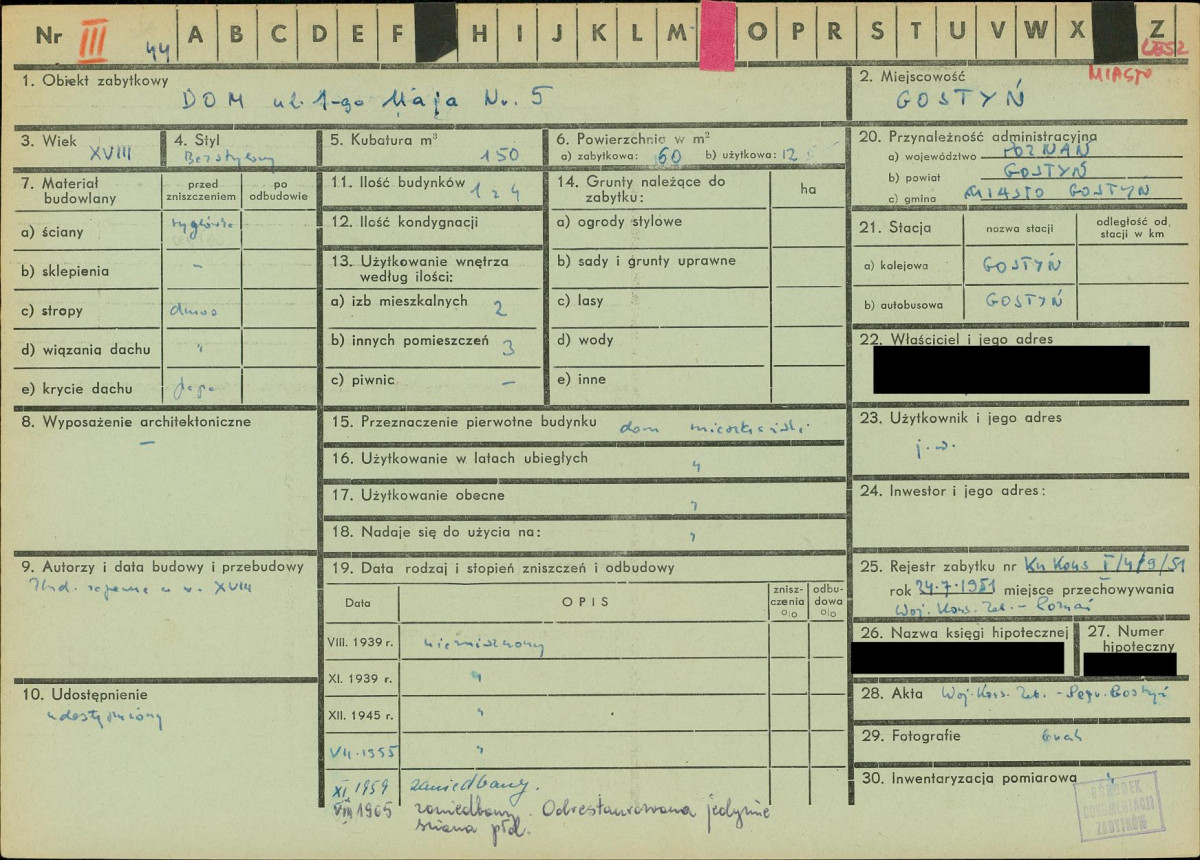 Nr III 44 A B C D E F H I J K L M O P R S T U V W X Z
LESZ
MIASTO
1. Obiekt zabytkowy
DOM ul. 1-go Maja Nr. 5
2. Miejscowość
GOSTYŃ
3. Wiek
XVIII
4. Styl
Bezstylowy
5. Kubatura m³
150
6. Powierzchnia w m²
a) zabytkowa: 60 b) użytkowa: 12
20. Przynależność administracyjna
a) województwo POZNAŃ
b) powiat GOSTYŃ
c) gmina MIASTO GOSTYŃ
7. Materiał budowlany
przed zniszczeniem
po odbudowie
a) ściany
b) sklepienia –
c) stropy
d) wiązania dachu "
e) krycie dachu papa
11. Ilość budynków 1 z 4
12. Ilość kondygnacji
13. Użytkowanie wnętrza
według ilości:
a) izb mieszkalnych 2
b) innych pomieszczeń 3
c) piwnic –
14. Grunty należące do
zabytku:
ha
a) ogrody stylowe
b) sady i grunty uprawne
c) lasy
d) wody
e) inne
21. Stacja
nazwa stacji
odległość od.
stacji w km
a) kolejowa GOSTYŃ
b) autobusowa GOSTYŃ
22. Właściciel i jego adres
8. Wyposażenie architektoniczne
–
15. Przeznaczenie pierwotne budynku dom mieszkalny
16. Użytkowanie w latach ubiegłych "
17. Użytkowanie obecne "
18. Nadaje się do użycia na: "
23. Użytkownik i jego adres
j.w.
24. Inwestor i jego adres:
9. Autorzy i data budowy i przebudowy
Zbud. zapewne w w. XVIII
10. Udostępnienie
udostępniony
19. Data rodzaj i stopień zniszczeń i odbudowy
Data
OPIS
znisz-
czenia
%
odbu-
dowa
%
VIII. 1939 r. niezniszczony
XI. 1939 r. "
XII. 1945 r. "
VII. 1955 "
XI 1959 zaniedbany.
VIII 1965 zaniedbany. Odrestaurowana jedynie
ściana płd.
25. Rejestr zabytku nr Kn Kons I/4/9/51
rok 24.7.1951 miejsce przechowywania
Woj. Kons. Zab. – Poznań
26. Nazwa księgi hipotecznej
27. Numer
hipoteczny
28. Akta Woj. Kons. Zab. –
29. Fotografie brak
30. Inwentaryzacja pomiarowa "
OŚRODEK
DOKUMENTACJI
ZABYTKÓW